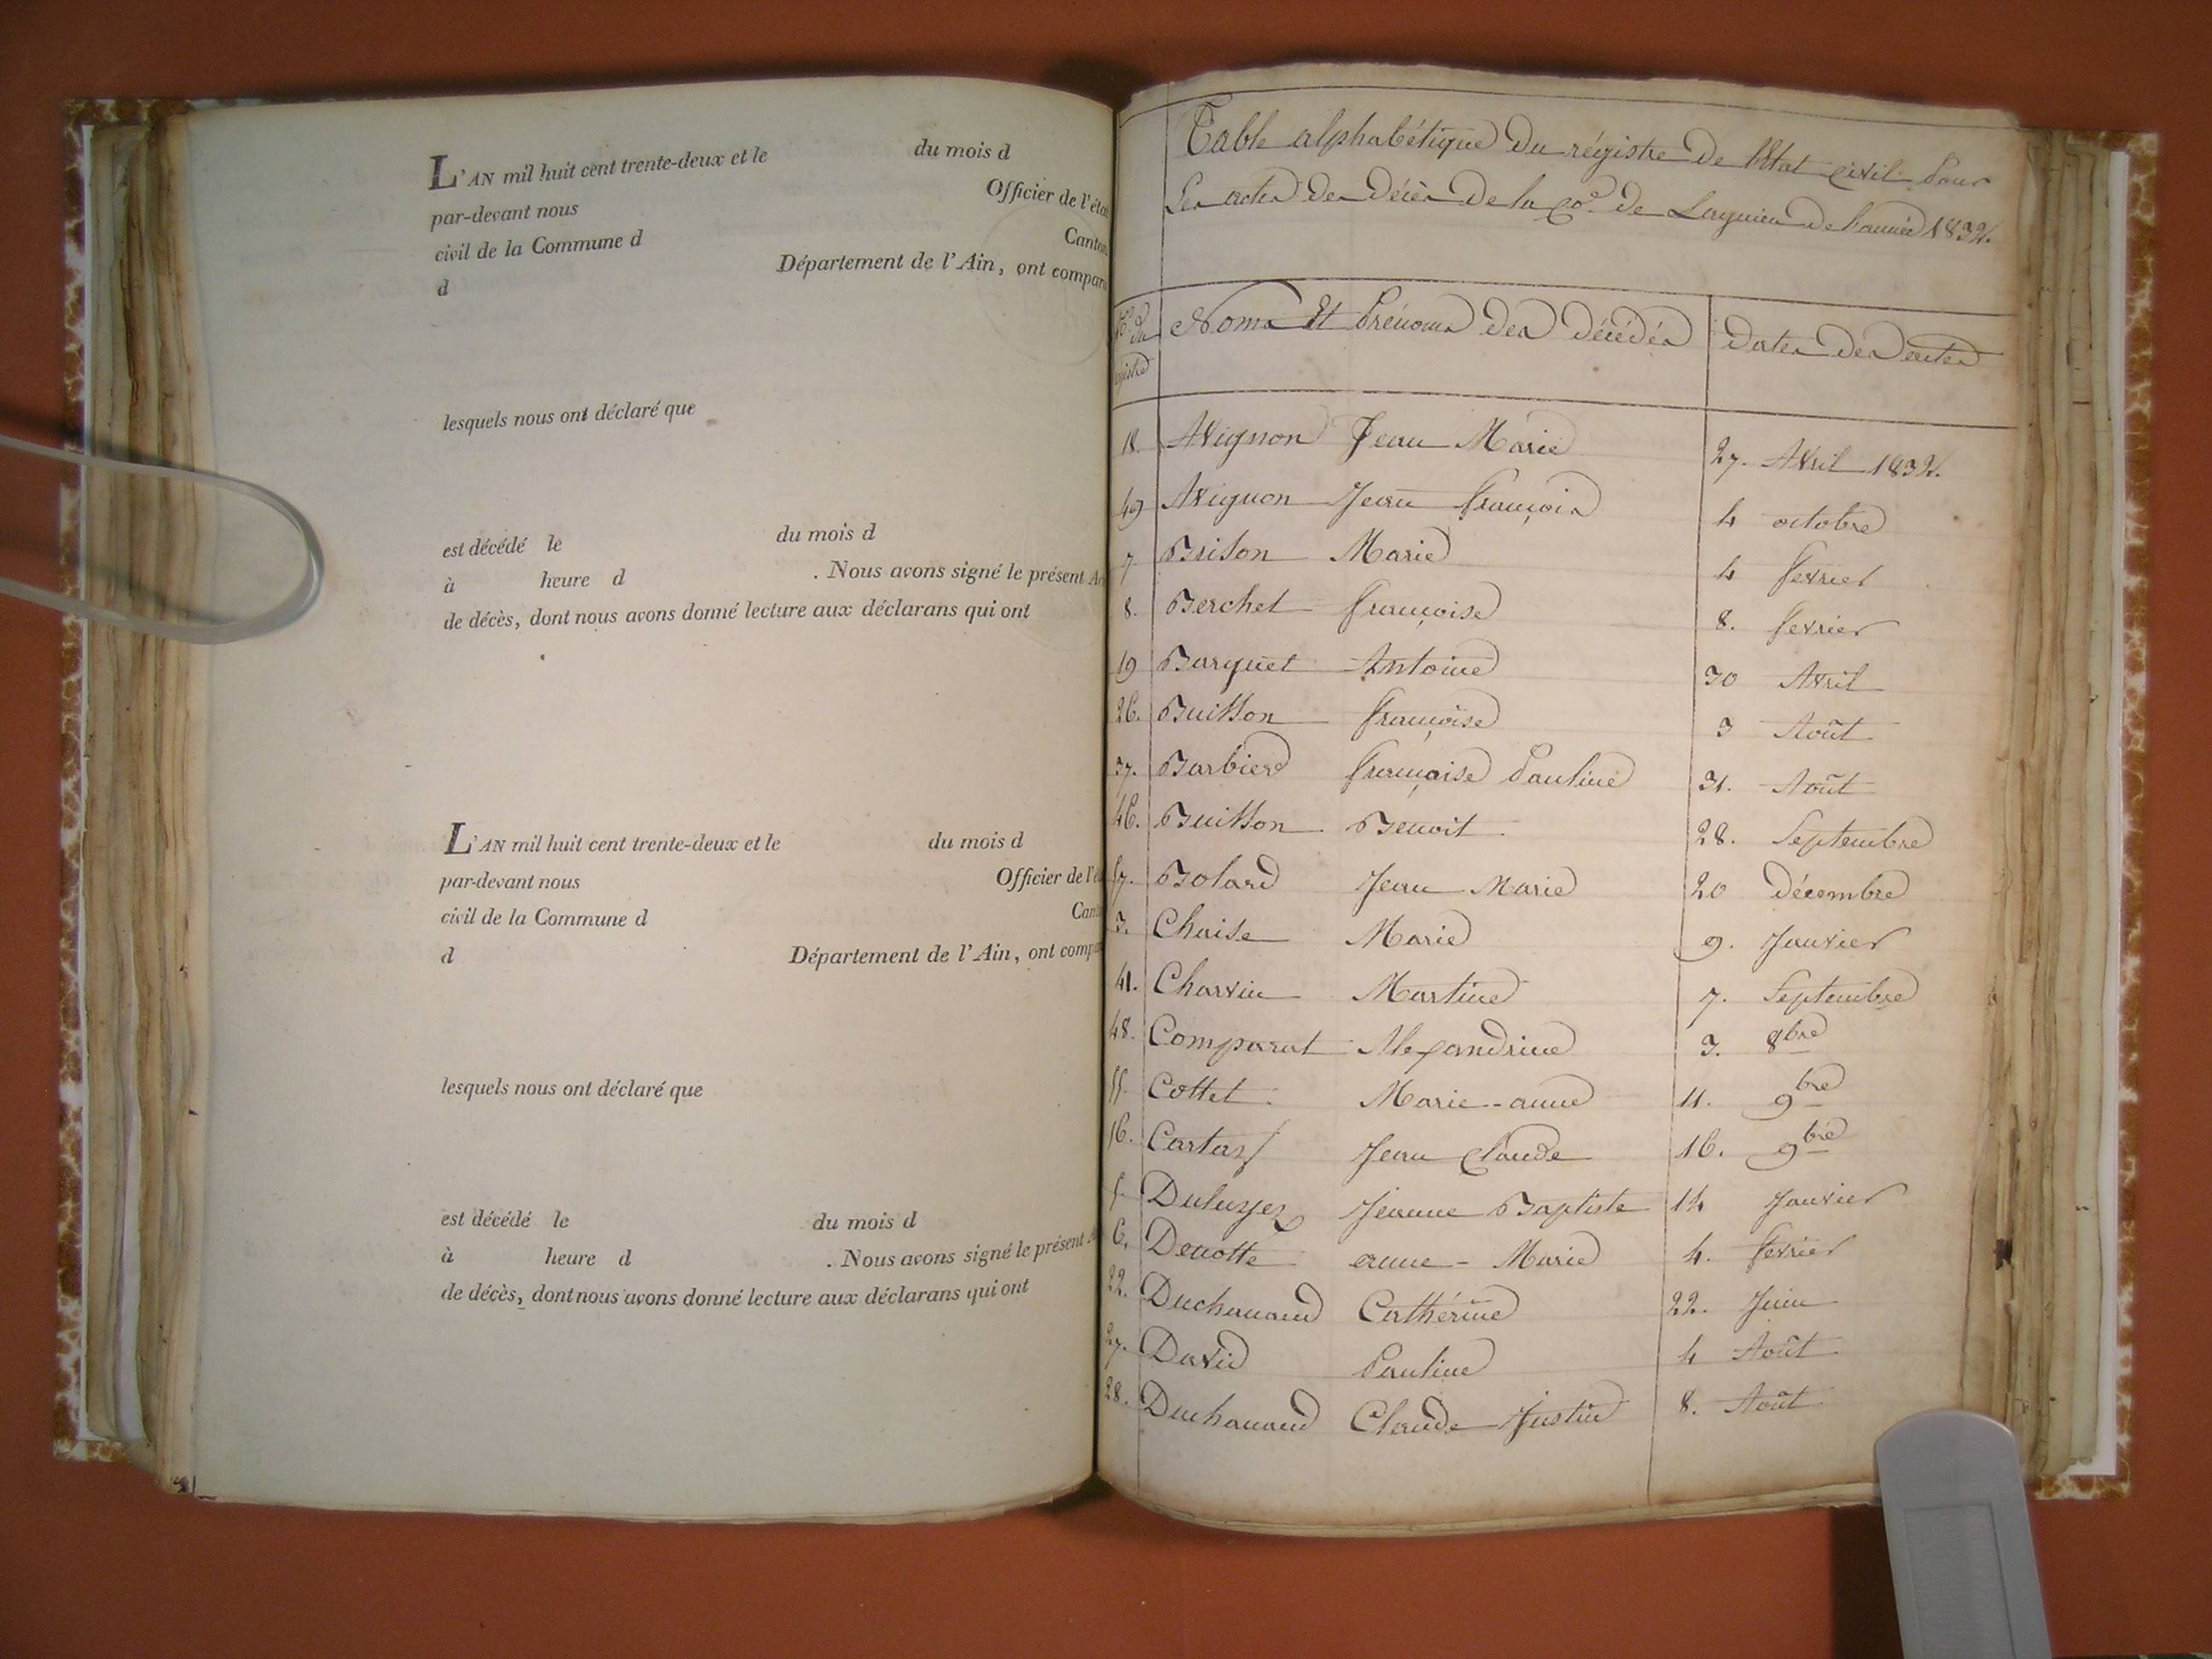 L'AN mil huit cent trente-deux et le du mois d
par-devant nous Officier de l'éta
civil de la Commune d Canton
d Département de l'Ain, ont comparu
lesquels nous ont déclaré que
est décédé le du mois d
à heure d . Nous avons signé le présent Ac
de décès, dont nous avons donné lecture aux déclarans qui ont
L'AN mil huit cent trente-deux et le du mois d
par-devant nous Officier de l'é
civil de la Commune d Can
d Département de l'Ain, ont compa
lesquels nous ont déclaré que
est décédé le du mois d
à heure d . Nous avons signé le présent A
de décès, dont nous avons donné lecture aux déclarans qui ont
Table alphabétique du régistre de l'état civil pour
Les actes de décès de la co.e de Lagnieu de l'année 1832.
N.o du Noms et Prénoms des décédés dates des actes
gistre
18. Avignon Jean Marie 27. Avril 1832.
49 Avignon Jean françois 4 octobre
7 Brison Marie 4 fevrier
8. Berchet françoise 8. fevrier
19 Barquet Antoine 30 Avril
26. Buisson françoise 3 Août
37. Barbier françoise Pauline 31. Août
46. Buisson Benoit 28. Septembre
57. Bolard Jean Marie 20 décembre
3. Chaise Marie 9. Janvier
41. Charvin Martine 7. Septembre
48. Comparat Alexandrine 3. 8bre
55 Cottet Marie-anne 11. 9bre
56. Cartas Jean Claude 16. 9bre
5 Jeanne Baptiste 14 Janvier
6. Denotte anne-Marie 4. fevrier
22. Duchanaud Cathérine 22. Juin
27. David Pauline 4 Août
28. Duchanaud Claude Justin 8. Août